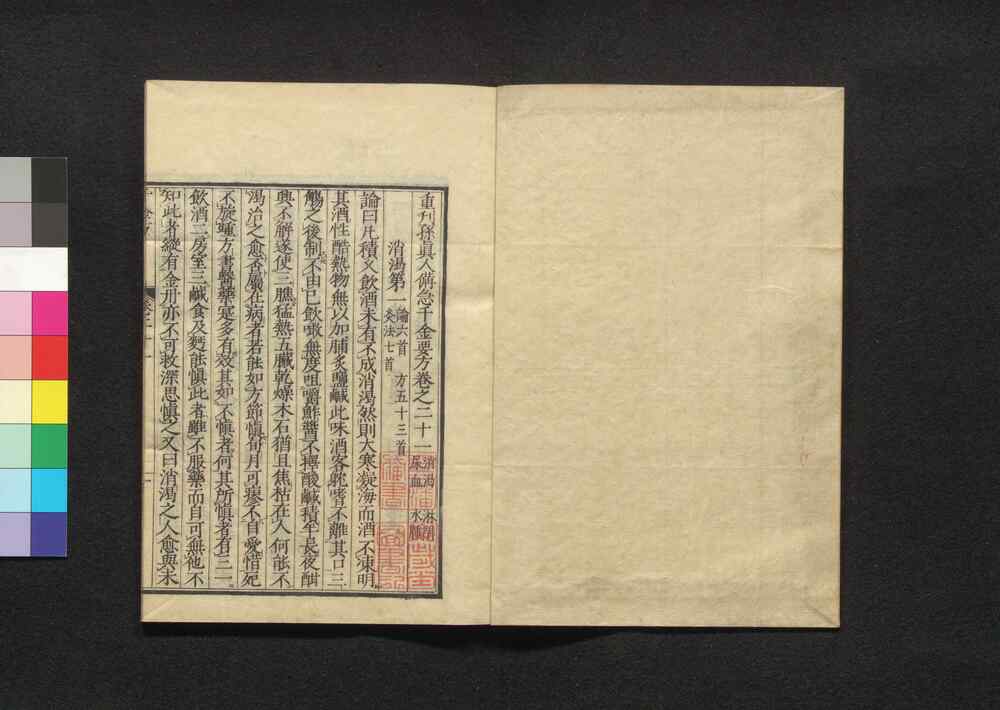 重刊孫真人備急千金要方卷之二十一 消渴 淋閉 尿血 水腫
消渴第一 論六首 方五十三首 灸法七首
論曰凡積久飲酒未有不成消渴然則大寒凝海而酒不凍明
其酒性酷熱物無以加脯炙鹽鹹此味酒客躭嗜不離其口三
觴之後制不由己飲噉無度咀嚼鮓醬不擇酸鹹積年長夜酣
興不解遂使三膲猛熱五臓乾燥木石猶且焦枯在人何能不
渴治之愈否屬在病者若能如方節慎旬月可瘳不自愛惜死
不旋踵方書醫藥寔多有效其如不慎者何其所慎者有三一
飲酒二房室三鹹食及麪能慎此者雖不服藥而自可無他不
知此者縱有金丹亦不可救深思慎之又曰消渴之人愈與未